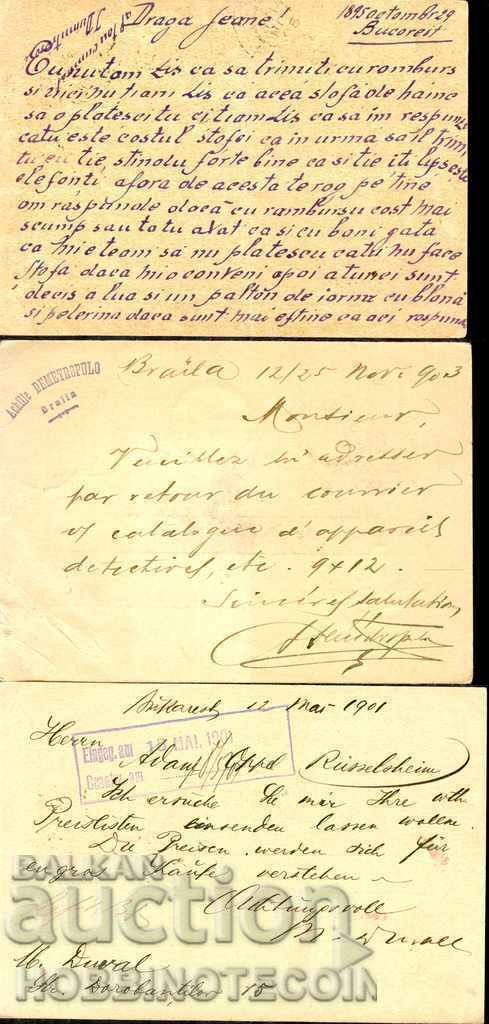 Draga Jeane!
1895 octombr 29
Bucorest
Eu nu tam Lis ca sa trimiti cu romburs
si nici nu tiam Lis ca acea stofa de haine
sa o platescu tu ci tiam Lis ca sa im respunzi
catu este costul stofei ca in urma sa il trim
forte bine ca si tie iti lipseste
elefonti, afora de acesta te rog pe tine
om raspunde dacă cu rambursu cost mai
scump sau totu atat ca si cu boni gata
ca nie team să nu platescu catu nu face
stofa daca mio conveni apoi atunci sunt
decis a lua si un palton de iarna cu blonă
si pelerina daca sunt mai eftine ca aci
Achille DEMETROPULO
Braila
Braïla 12/25 Nov. 903
Monsieur,
Veuillez m'adresser
par retour du courrier
vf catalogue d'appareils
detectives, etc. 9x12.
Sincères salutations,
Bukarest 12 Mai 1901
Eingeg. am 15 MAI. 1901
Beantw. am
Herrn
Adam Opel Rüsselsheim
Ich ersuche Sie mir Ihre wth
Preislisten einsenden lassen wollen.
Die Preisen werden sich für
en gros Käufe verstehen
Achtungsvoll
M. Duval
M. Duval
Str. Dorobanților 15
BALKAN
auction
HOBBINOTECOIN